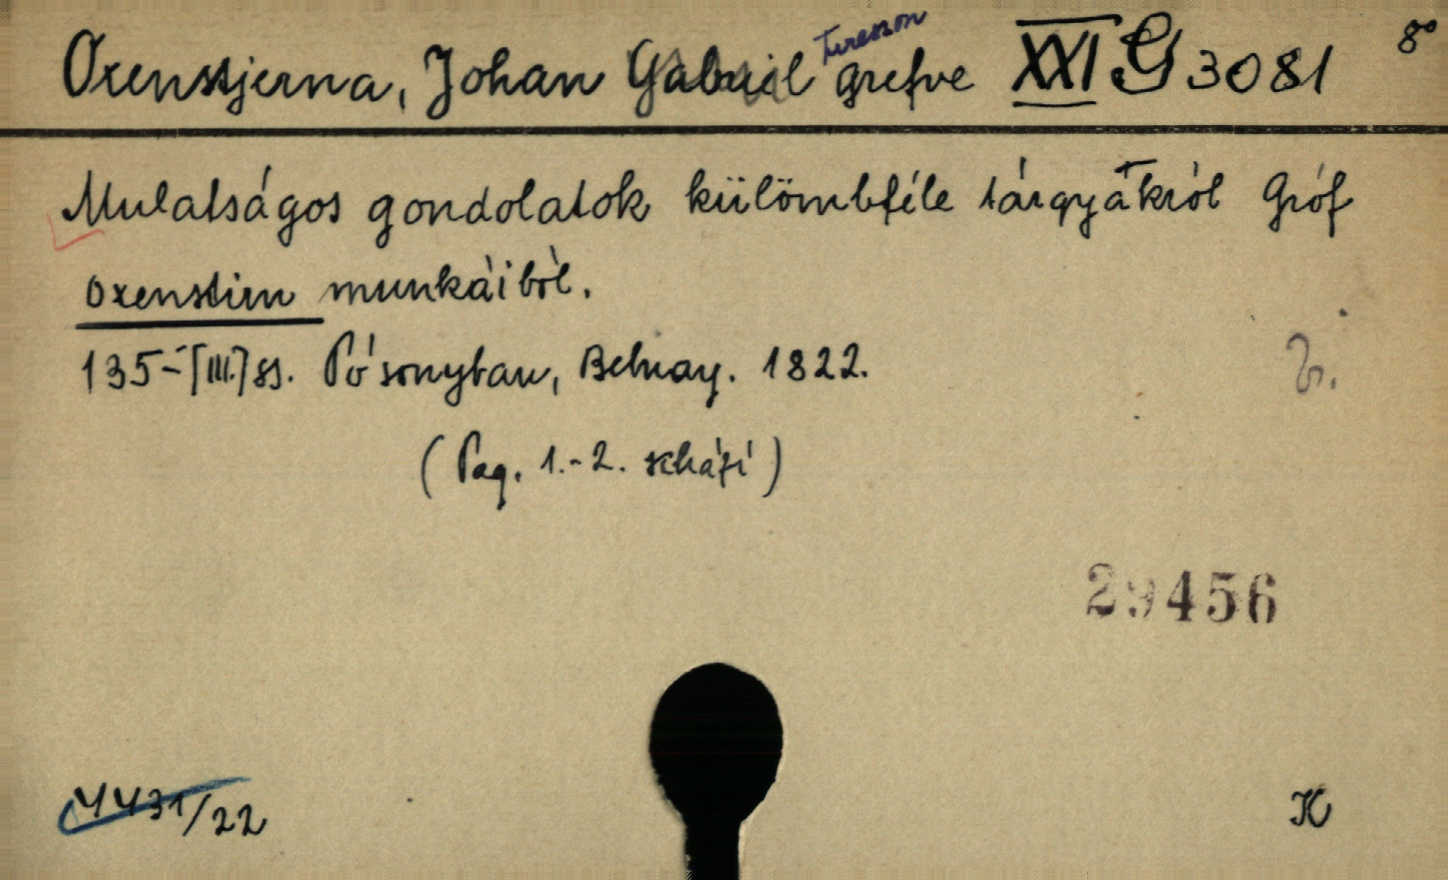 Oxenstjerna, Johan Gabriel Turesson grefve XXI G 3081 8°
Mulatságos gondolatok külömbféle tárgyakról Gróf
Oxenstirn munkáiból.
135-[III.] ss. Po'sonyban, Belnay. 1822.
(Pag. 1.-2. )
29456
4431/22
K